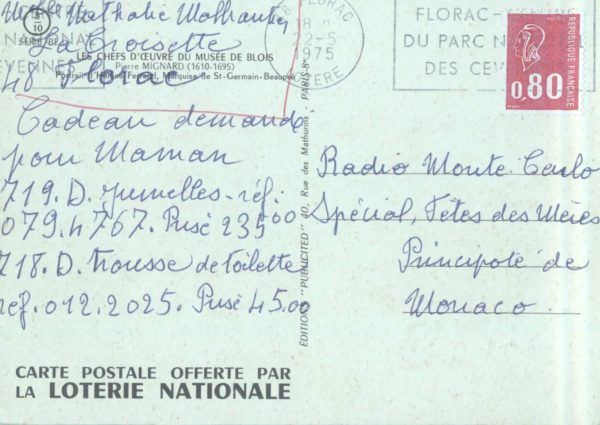 Nathalie
La Croisette
48 Florac
SÉRIE
10
LES CHEFS D'ŒUVRE DU MUSÉE DE BLOIS
Pierre MIGNARD (1610-1695)
Marquise de St-Germain-Beaupré
Cadeau demandé
pour Maman
719. D. jumelles - réf.
079.4767. Prisé 235 00
718. D. Trousse de Toilette
réf. 012.2025. Prisé 45.00
CARTE POSTALE OFFERTE PAR
LA LOTERIE NATIONALE
ÉDITIONS "PUBLICITED" 40, Rue des Mathurins - PARIS-8e
FLORAC
18 H
22-5
1975
LOZERE
FLORAC
DU PARC
DES
REPUBLIQUE FRANÇAISE
0,80
Radio Monte Carlo
Spécial, Fêtes des Mères
Principoté de
Monaco.